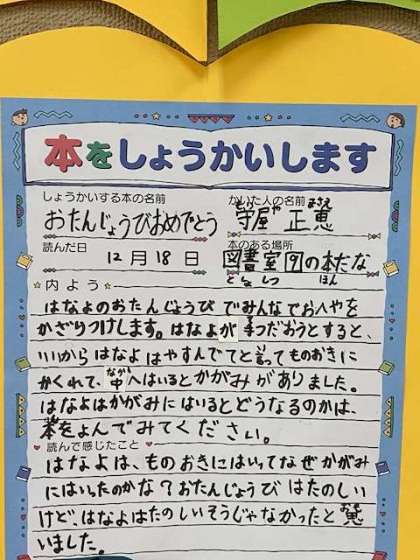 本をしょうかいします
しょうかいする本の名前
おたんじょうびおめでとう
かいた人の名前
守屋 正恵
もりや まさえ
読んだ日
12月18日
本のある場所
図書室9の本だな
としょ しつ ほん
☆内よう☆
はなよのおたんじょうびでみんなでおへやを
かざりつけします。はなよが手つだおうとすると、
いいからはなよはやすんでてと言ってものおきに
かくれて、中へはいるとかがみがありました。
なか
はなよはかがみにはいるとどうなるのかは、
本をよんでみてください。
♥読んで感じたこと♥
はなよは、ものおきにはいってなぜかがみ
にはいったのかな？おたんじょうびはたのしい
けど、はなよはたのしいそうじゃなかったと思
いました。